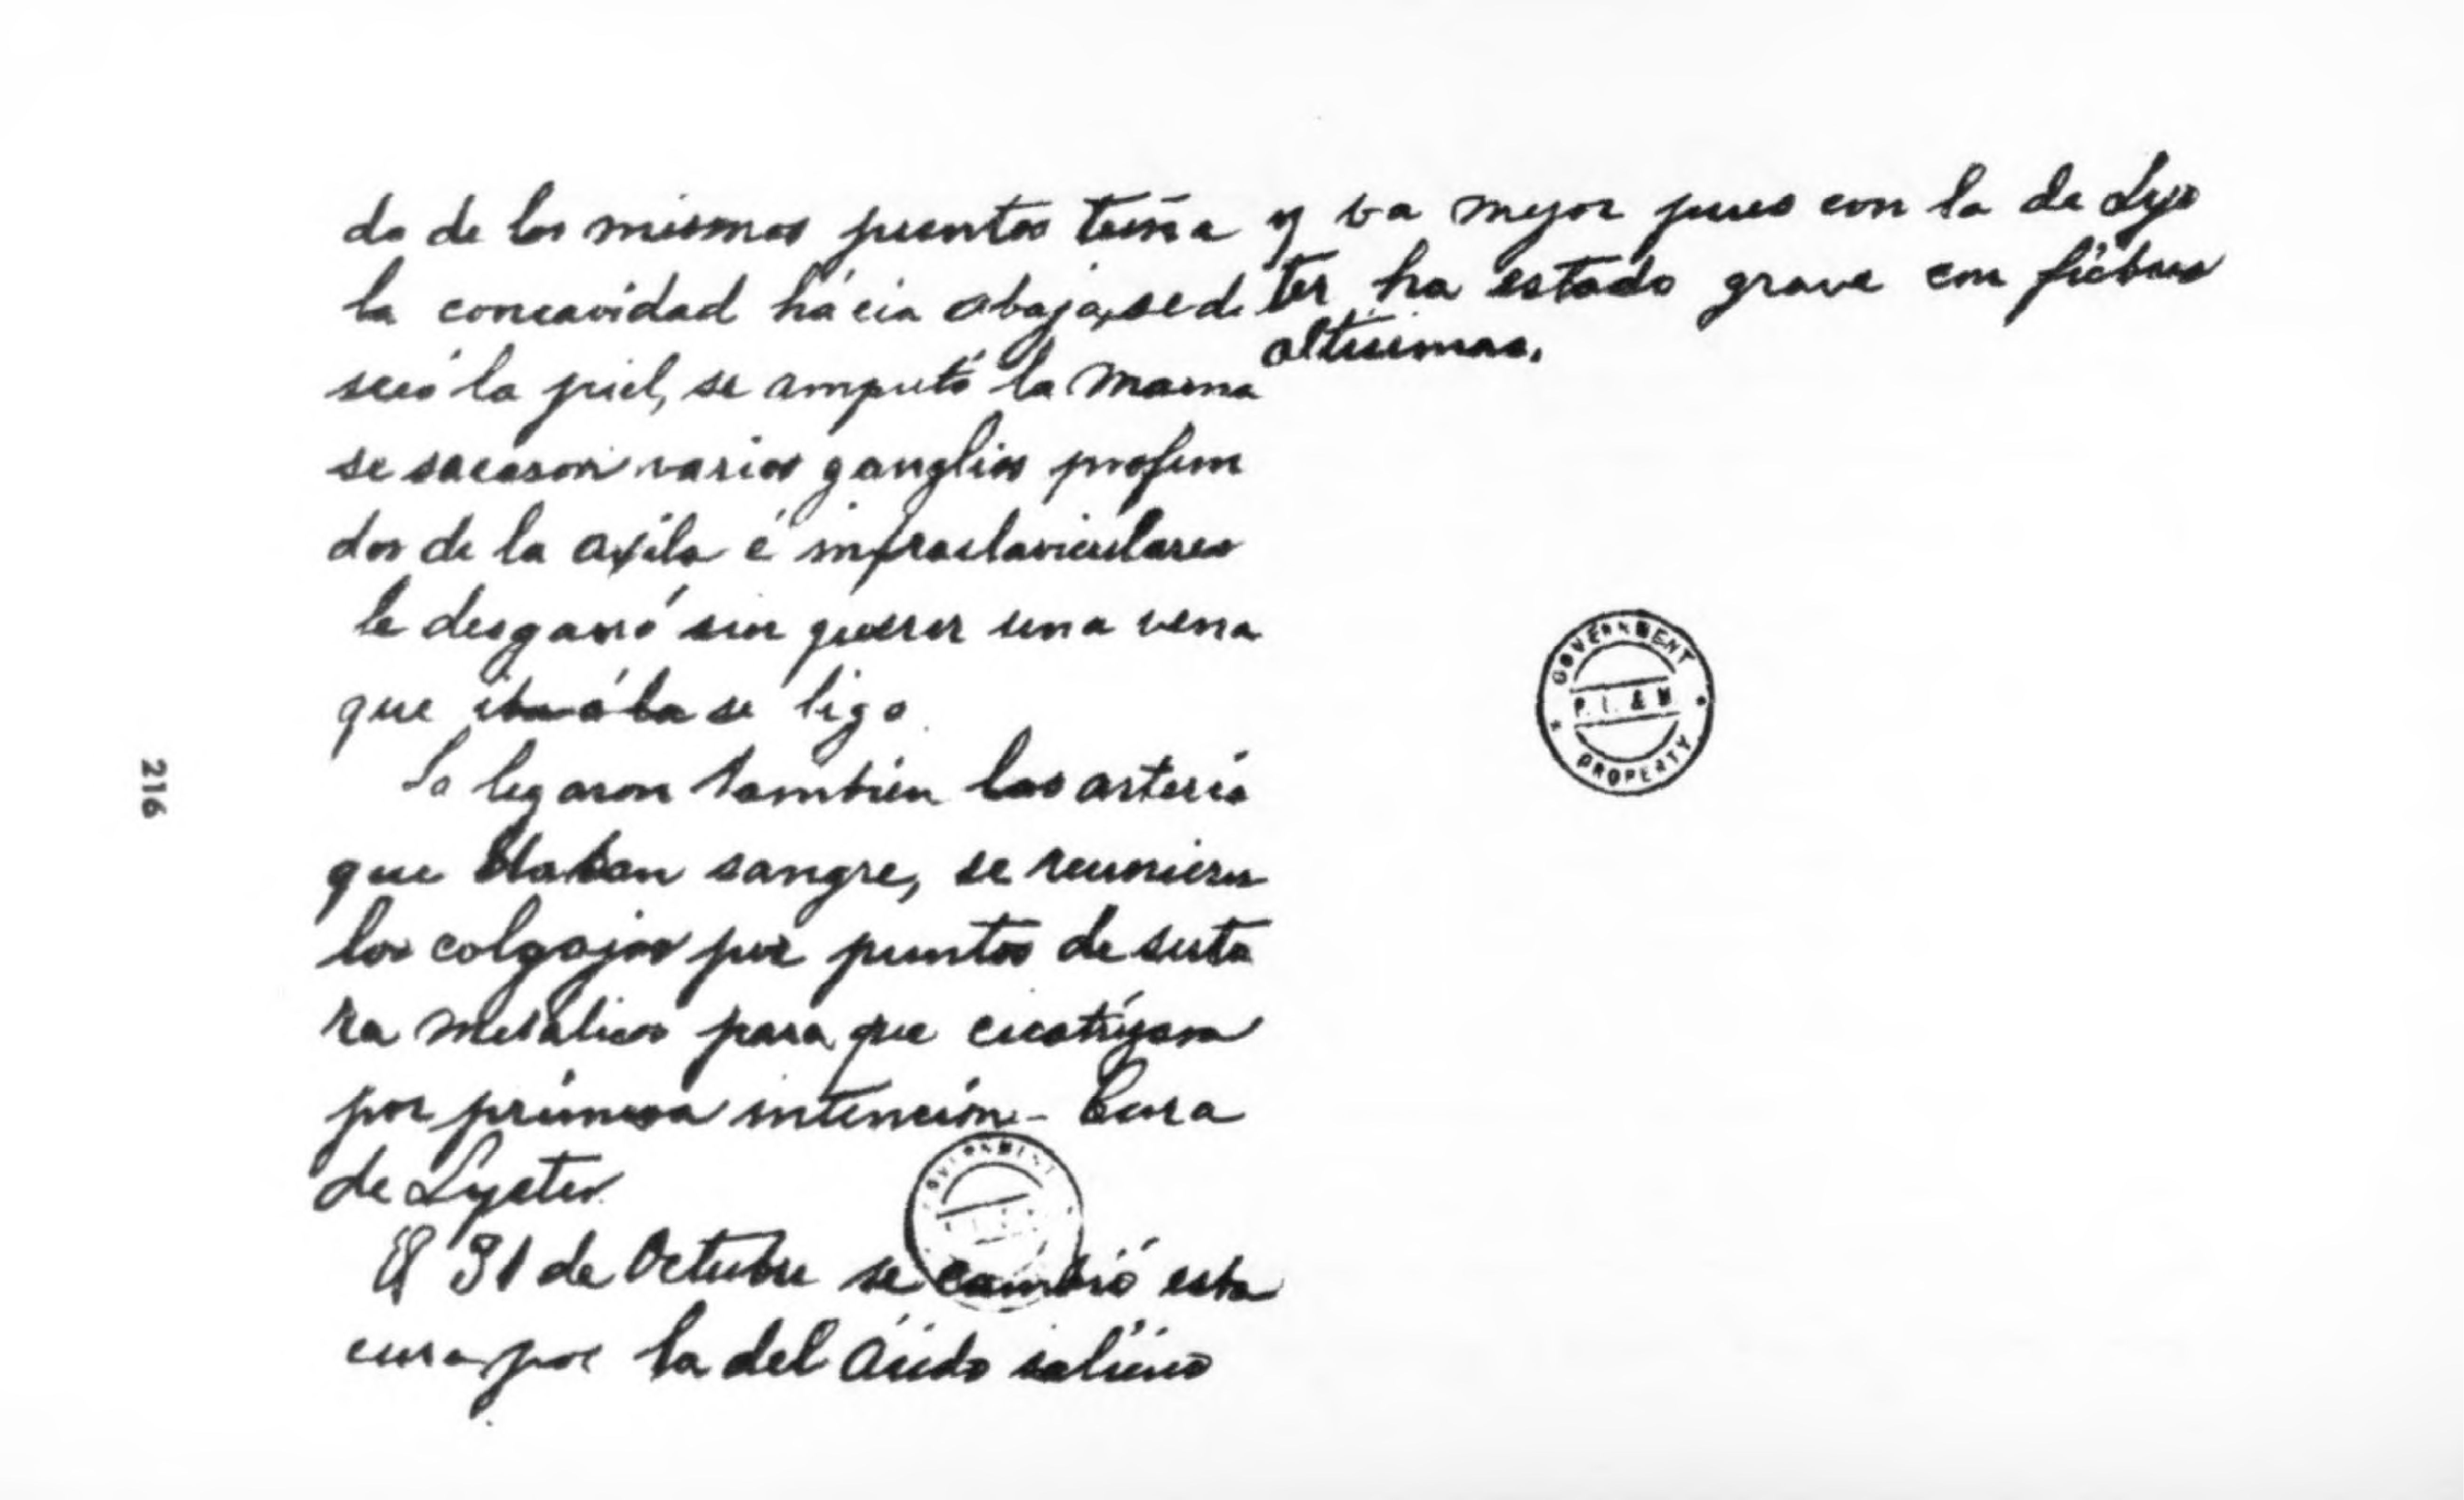 do de los mismos puntos tenía
la concavidad hácia abajo, se di
secó la piel, se amputó la mama
se sacaron varios ganglios profun
dos de la axila é infraclaviculares
le desgarró sin querer una vena
que se ligó
Se ligaron también las arteria
que daban sangre, se reunieron
los colgajos por puntos de sutu
ra metálicos para que cicatrizara
por primera intención - Cura
de Lyster
El 31 de Octubre se cambió esta
cura por la del Ácido salícico
y va mejor pues con la de Lys
ter ha estado grave con fiebres
altísimas.
GOVERNMENT
P. I. & M.
PROPERTY
216